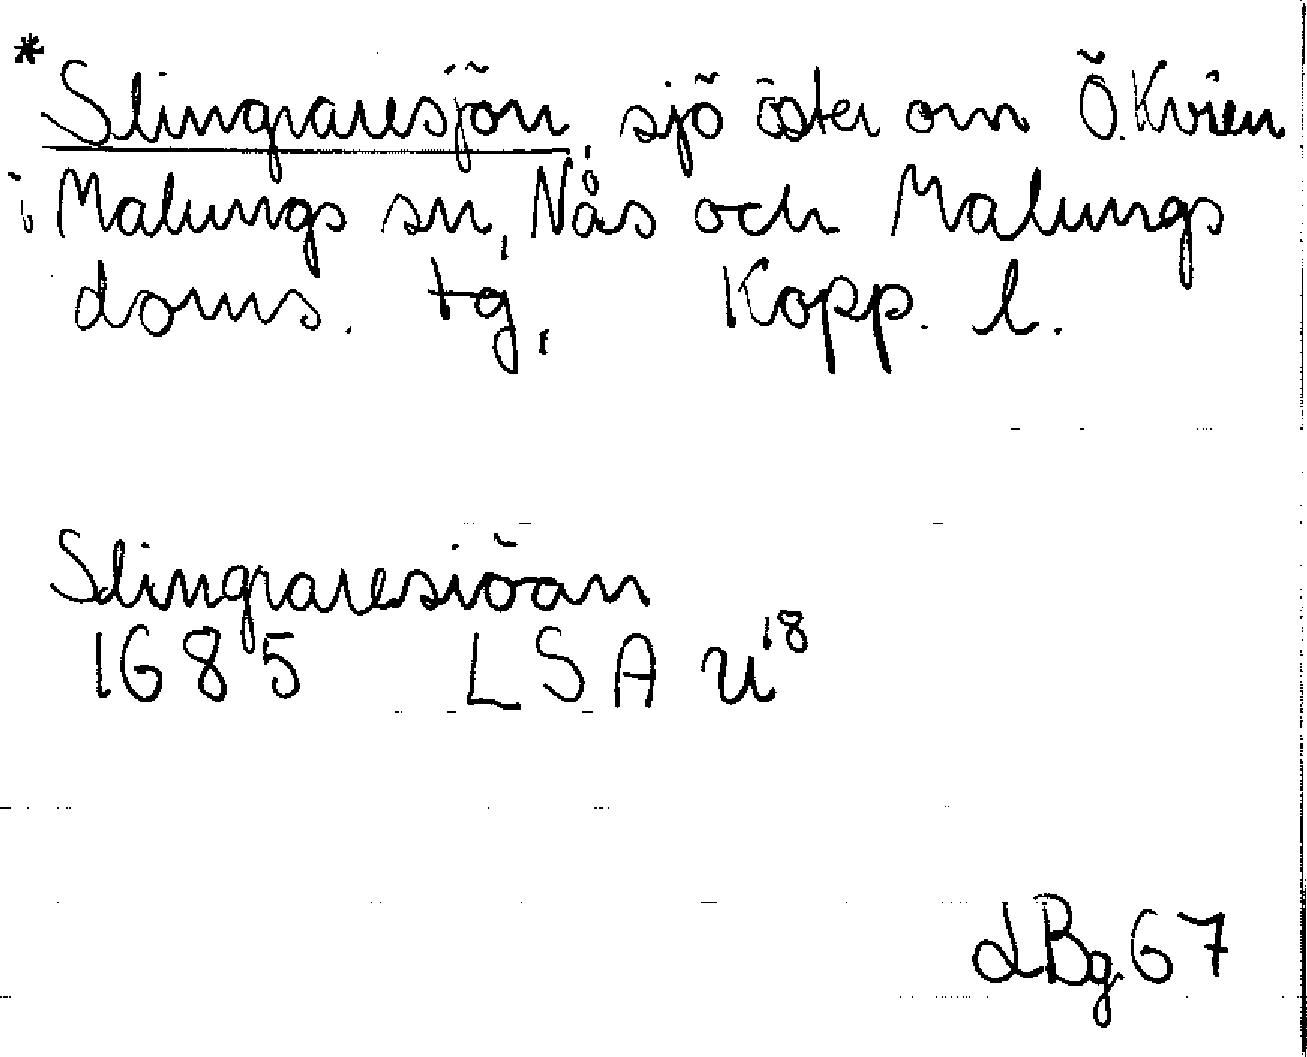 *Slingraresjön, sjö öster om Ö. Kvien
i Malungs sn, Nås och Malungs
doms. tg, Kopp. l.
Slingraresiöan
1685 LSA U¹⁸
LBg. 67